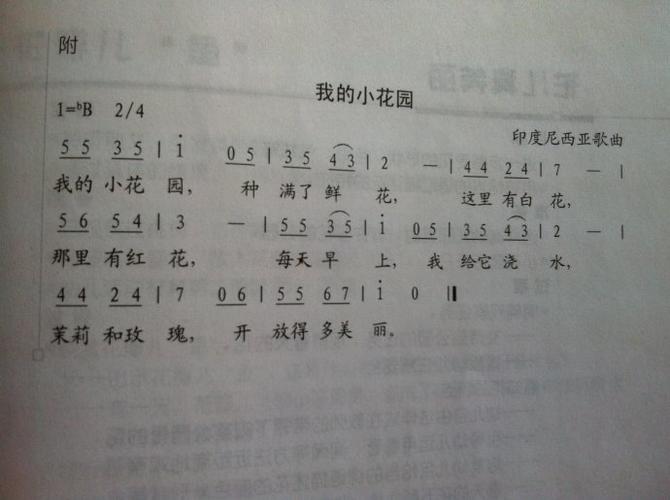 附
我的小花园
1=ᵇB 2/4
印度尼西亚歌曲
5 5 3 5 | i 0 5 | 3 5 4 3 | 2 — | 4 4 2 4 | 7 — |
我的 小花 园, 种 满了 鲜 花, 这里 有白 花,
5 6 5 4 | 3 — | 5 5 3 5 | i 0 5 | 3 5 4 3 | 2 — |
那里 有红 花, 每天 早 上, 我 给它 浇 水,
4 4 2 4 | 7 0 6 | 5 5 6 7 | i 0 ‖
茉莉 和玫 瑰, 开 放得 多美 丽。